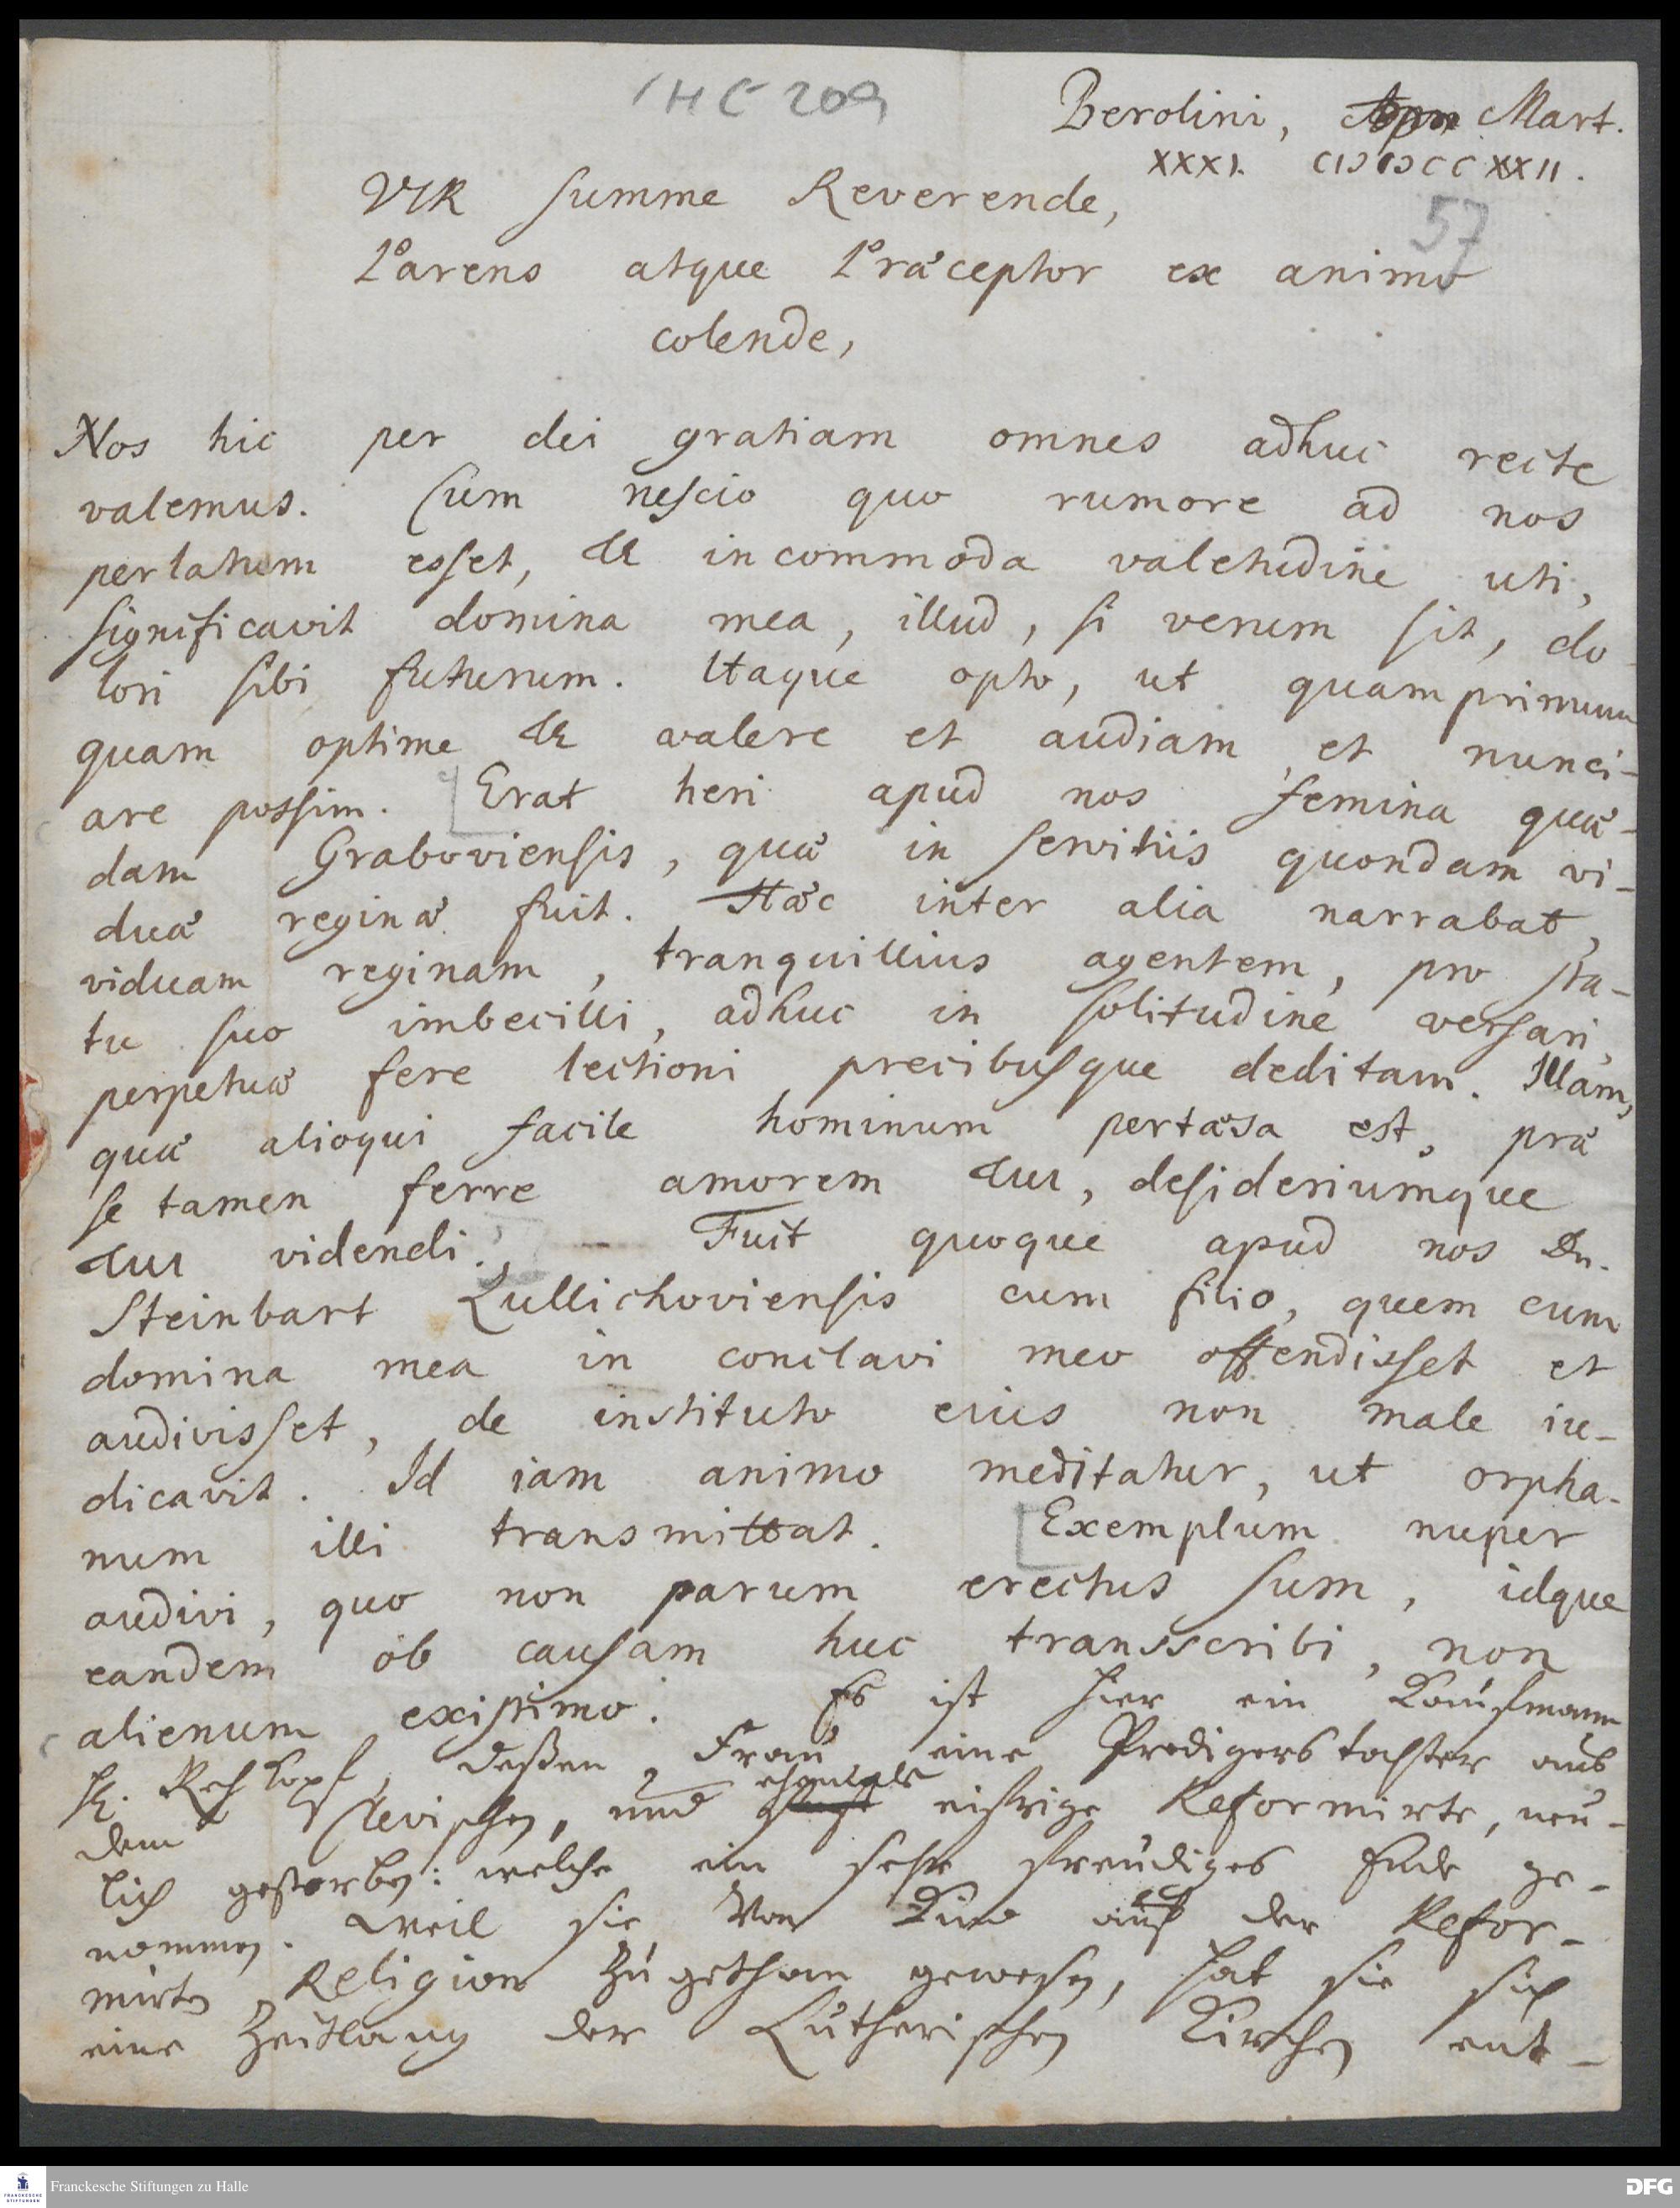 1 H C 209
Berolini, Mart.
XXXI. CIƆIƆCCXXII.
57
VIR summe Reverende,
Parens atque Præceptor ex animo
colende,
Nos hic per dei gratiam omnes adhuc recte
valemus. Cum nescio quo rumore ad nos
perlatum esset, TE incommoda valetudine uti,
significavit domina mea, illud, si verum sit, do-
lori sibi futurum. Itaque opto, ut quamprimum
quam optime TE valere et audiam et nunci-
are possim. Erat heri apud nos femina quæ-
dam Graboviensis, quæ in servitiis quondam vi-
duæ reginæ fuit. Hæc inter alia narrabat,
viduam reginam, tranquillius agentem, pro sta-
tu suo imbecilli, adhuc in solitudine versari,
perpetuæ fere lectioni precibusque deditam. Illam,
quæ alioqui facile hominum pertæsa est, præ
se tamen ferre amorem TUI, desideriumque
TUI videndi. – Fuit quoque apud nos Dn.
Steinbart Zullichoviensis cum filio, quem cum
domina mea in conclavi meo offendisset et
audivisset, de instituto eius non male iu-
dicavit. Id iam animo meditatur, ut orpha-
num illi transmittat. Exemplum nuper
audivi, quo non parum erectus sum, idque
eandem ob causam huc transscribi, non
alienum existimo. Es ist hier ein Kaufmann
H. Rehkopf, deßen Frau, eine Predigers tochter aus
dem Clevischen, und ehemals eifrige Reformirte, neu-
lich gestorben: welche ein sehr freudiges Ende ge-
nommen. Weil sie von Kind auf der Refor-
mirten Religion zugethan gewesen, hat sie sich
eine Zeitlang der Lutherischen Kirchen ent-
Franckesche Stiftungen zu Halle
DFG